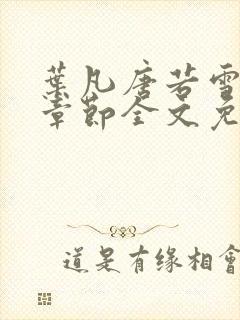 葉凡唐若雪
章節全文免
道是有缘相會